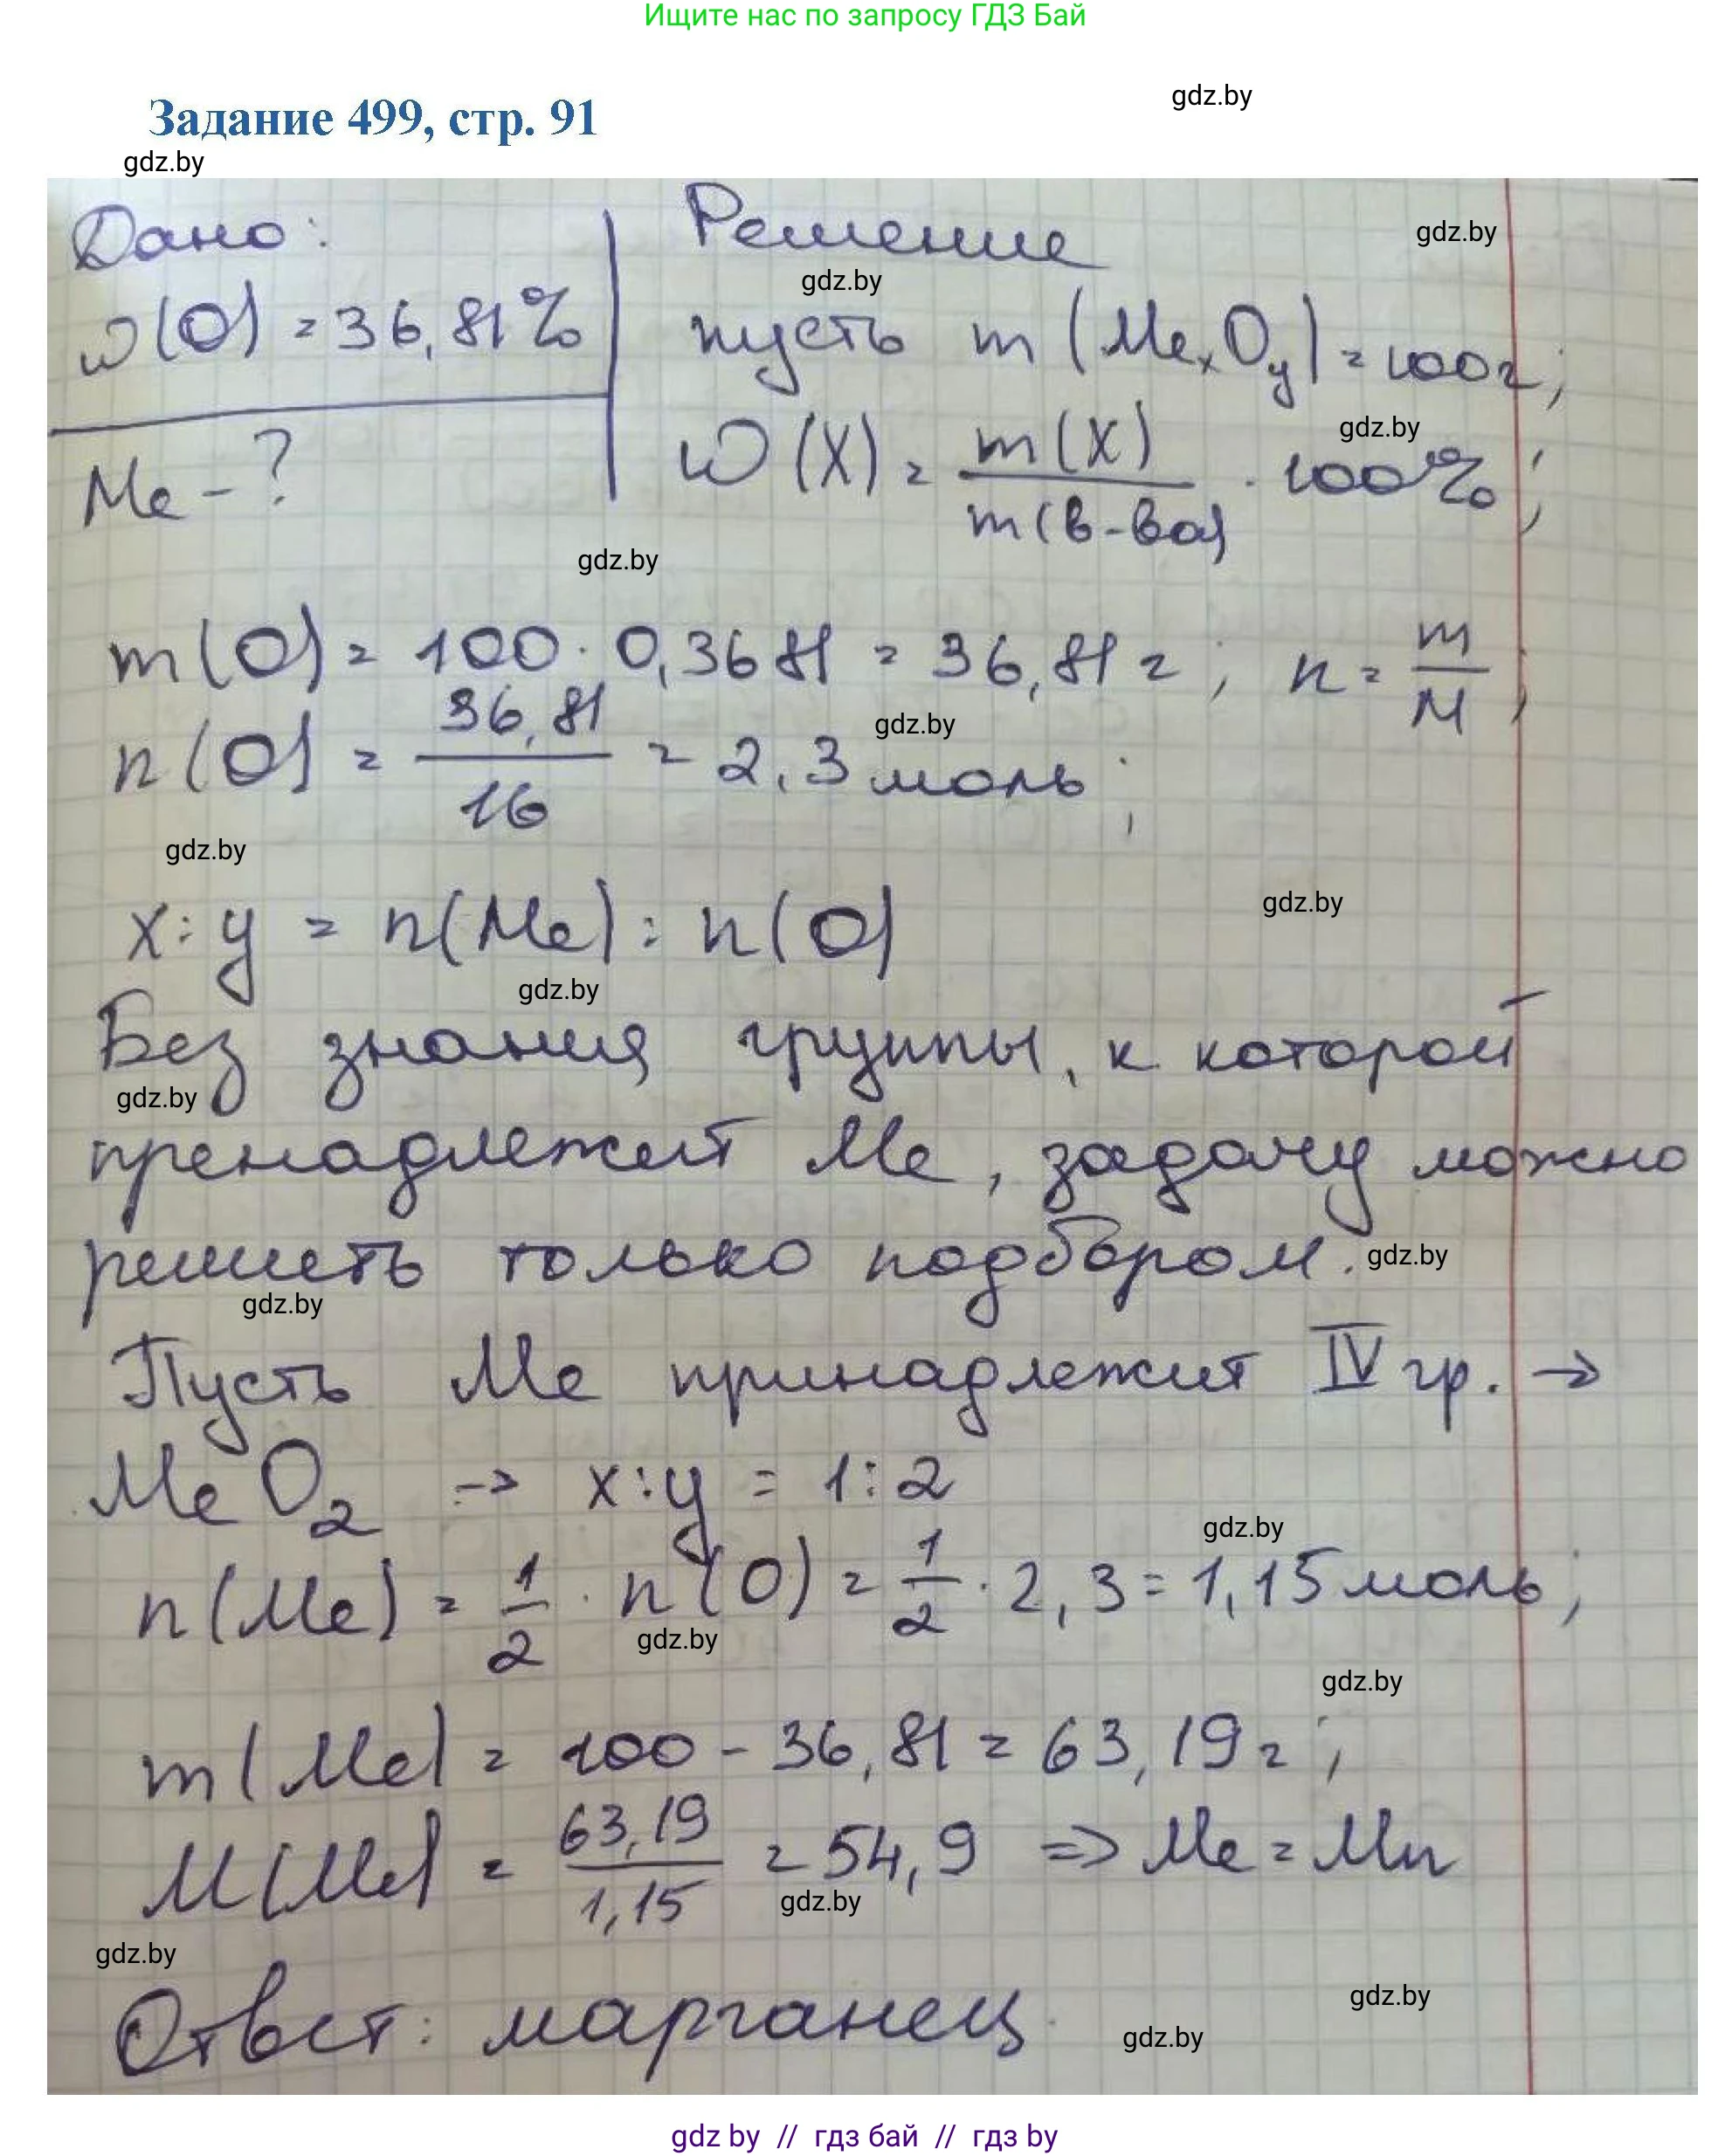 Ищите нас по запросу ГДЗ Бай
gdz.by
Задание 499, стр. 91
gdz.by
Дано: Решение
gdz.by
gdz.by
ω(O) = 36,81% пусть m(MexOy) = 100г;
gdz.by
Me - ? ω(X) = m(X) / m(в-ва) · 100%;
gdz.by
m(O) = 100 · 0,3681 = 36,81 г; n = m / M;
gdz.by
n(O) = 36,81 / 16 = 2,3 моль;
gdz.by
gdz.by
x:y = n(Me) : n(O)
gdz.by
Без знания группы, к которой
gdz.by
пренадлежит Me, задачу можно
решить только подбором.
gdz.by
gdz.by
Пусть Me принадлежит IV гр. →
MeO2 → x:y = 1:2
gdz.by
n(Me) = 1/2 · n(O) = 1/2 · 2,3 = 1,15 моль;
gdz.by
gdz.by
m(Me) = 100 - 36,81 = 63,19 г;
M(Me) = 63,19 / 1,15 = 54,9 => Me = Mn
gdz.by
gdz.by
gdz.by
Ответ: марганец
gdz.by
gdz by // гдз бай // гдз by